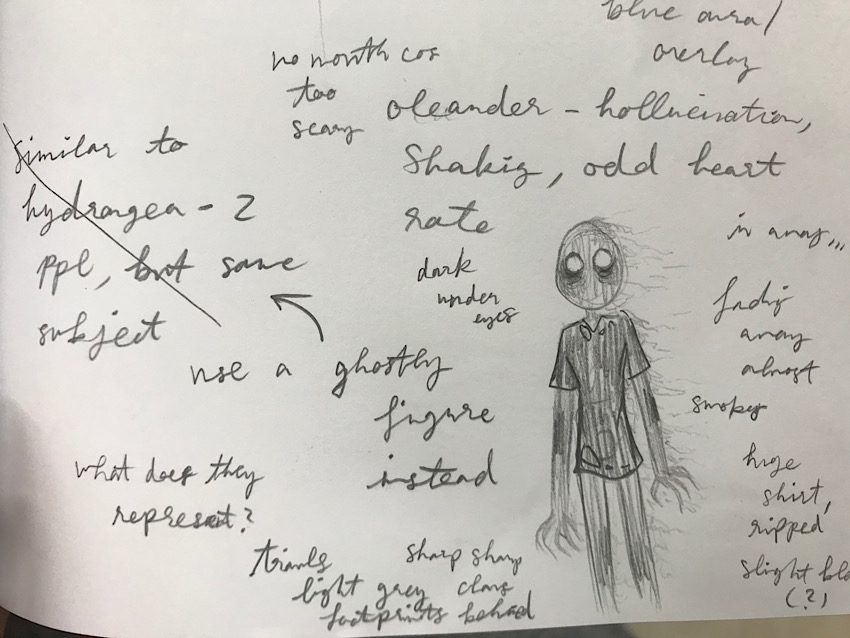 blue aura/
overlay
no mouth cos
too
scary
oleander - hallucination,
Shakig, odd heart
rate
similar to
hydrangea - 2
ppl, but same
subject
dark
under
eyes
use a ghostly
figure
instead
fadig
away
almost
smokey
huge
shirt,
ripped
slight
(?)
what does they
represent?
light grey
footprints behind
sharp sharp
claws